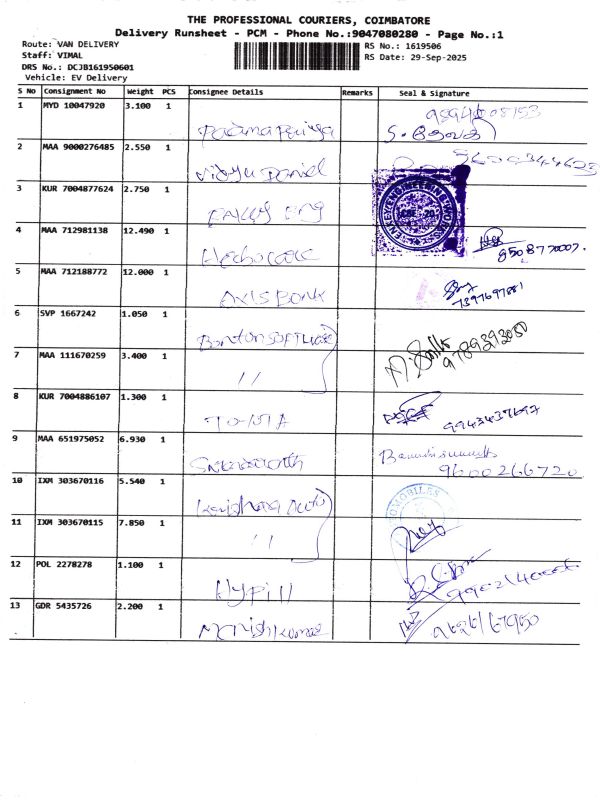 THE PROFESSIONAL COURIERS, COIMBATORE
Delivery Runsheet - PCM - Phone No.:9047080280 - Page No.:1
Route: VAN DELIVERY
Staff: VIMAL
DRS No.: DCJB161950601
Vehicle: EV Delivery
RS No.: 1619506
RS Date: 29-Sep-2025
S No Consignment No Weight PCS Consignee Details Remarks Seal & Signature
1 MYD 10047920 3.100 1 Padmapriya
2 MAA 9000276485 2.550 1 Vidyu Daniel
3 KUR 7004877624 2.750 1 Eng
4 MAA 712981138 12.490 1
5 MAA 712188772 12.000 1 AXIS BANK 7397697881
6 SVP 1667242 1.050 1 Bonton software
7 MAA 111670259 3.400 1 11 9789393080
8 KUR 7004886107 1.300 1
9 MAA 651975052 6.930 1 9600266720
10 IXM 303670116 5.540 1 Krishna Auto
11 IXM 303670115 7.850 1 11
12 POL 2278278 1.100 1
13 GDR 5435726 2.200 1 Manish Kumar